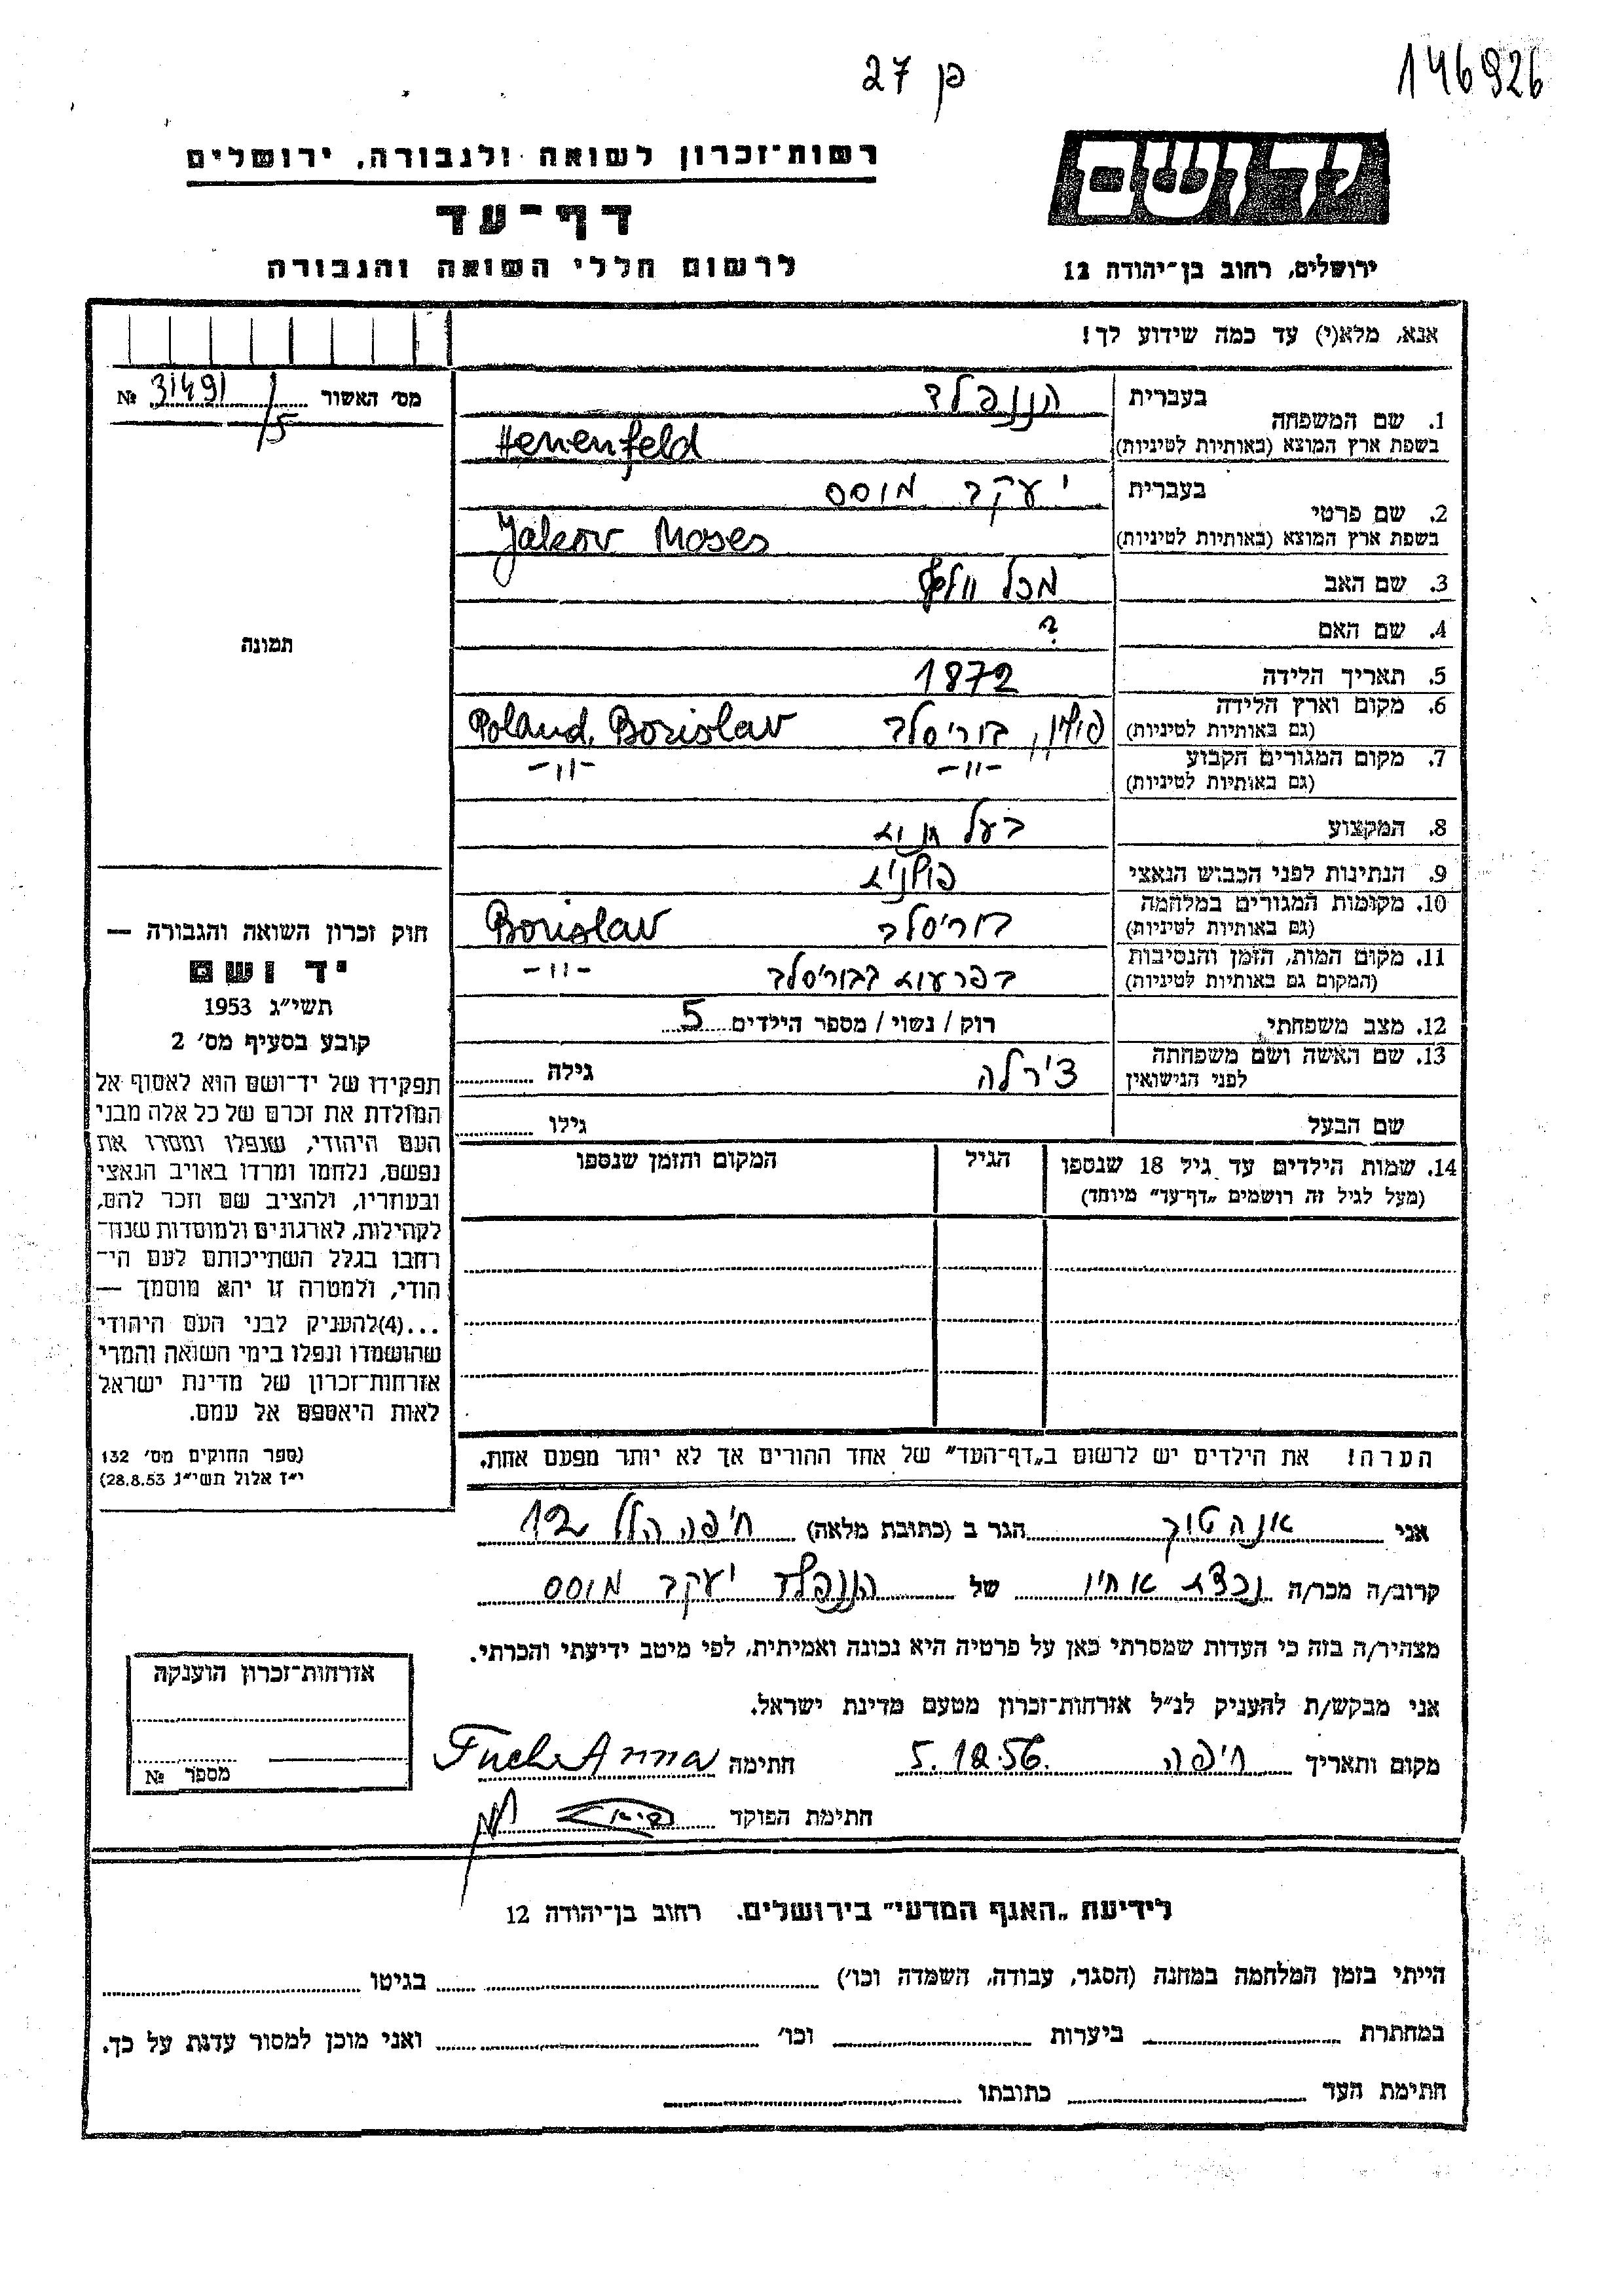 פן 27
146926
רשות־זכרון לשואה ולגבורה, ירושלים
דף־עד
לרשום חללי השואה והגבורה
יד ושם
ירושלים, רחוב בן־יהודה 12
אנא, מלא(י) עד כמה שידוע לך!
מס׳ האשור 31491/5 №
תמונה
1. שם המשפחה בעברית הננפלד
בשפת ארץ המוצא (באותיות לטיניות) Henenfeld
2. שם פרטי בעברית יעקב מוסס
בשפת ארץ המוצא (באותיות לטיניות) Jakov Moses
3. שם האב מכל וולף
4. שם האם ?
5. תאריך הלידה 1872
6. מקום וארץ הלידה (גם באותיות לטיניות) פולין, בוריסלב Poland, Borislav
7. מקום המגורים הקבוע (גם באותיות לטיניות) -"- -"-
8. המקצוע בעל
9. הנתינות לפני הכבוש הנאצי פולנית
10. מקומות המגורים במלחמה (גם באותיות לטיניות) בוריסלב Borislav
11. מקום המות, הזמן והנסיבות (המקום גם באותיות לטיניות) בפרעות בבוריסלב -"-
12. מצב משפחתי רוק / נשוי / מספר הילדים 5
13. שם האשה ושם משפחתה לפני הנישואין צ'רלה גילה
שם הבעל גילו
14. שמות הילדים עד גיל 18 שנספו (מעל לגיל זה רושמים „דף־עד״ מיוחד)
הגיל
המקום והזמן שנספו
חוק זכרון השואה והגבורה —
יד ושם
תשי״ג 1953
קובע בסעיף מס׳ 2
תפקידו של יד־ושם הוא לאסוף אל
המולדת את זכרם של כל אלה מבני
העם היהודי, שנפלו ומסרו את
נפשם, נלחמו ומרדו באויב הנאצי
ובעוזריו, ולהציב שם וזכר להם,
לקהילות, לארגונים ולמוסדות שנח־
רבו בגלל השתייכותם לעם הי־
הודי, ולמטרה זו יהא מוסמך —
...(4)להעניק לבני העם היהודי
שהושמדו ונפלו בימי השואה והמרי
אזרחות־זכרון של מדינת ישראל
לאות היאספם אל עמם.
(ספר החוקים מס׳ 132
י״ז אלול תשי״ג 28.8.53)
הערה! את הילדים יש לרשום ב„דף־העד״ של אחד ההורים אך לא יותר מפעם אחת.
אני אנה פוך הגר ב (כתובת מלאה) חיפה הלל 12
קרוב/ה מכר/ה נכדת אחיו של הננפלד יעקב מוסס
מצהיר/ה בזה כי העדות שמסרתי כאן על פרטיה היא נכונה ואמיתית, לפי מיטב ידיעתי והכרתי.
אני מבקש/ת להעניק לנ״ל אזרחות־זכרון מטעם מדינת ישראל.
מקום ותאריך חיפה 5.12.56. חתימה Fuch Anna
חתימת הפוקד
אזרחות־זכרון הוענקה
מספר №
לידיעת „האגף המדעי״ בירושלים. רחוב בן־יהודה 12
הייתי בזמן המלחמה במחנה (הסגר, עבודה, השמדה וכו׳) בגיטו
במחתרת ביערות וכו׳ ואני מוכן למסור עדות על כך.
חתימת העד כתובתו